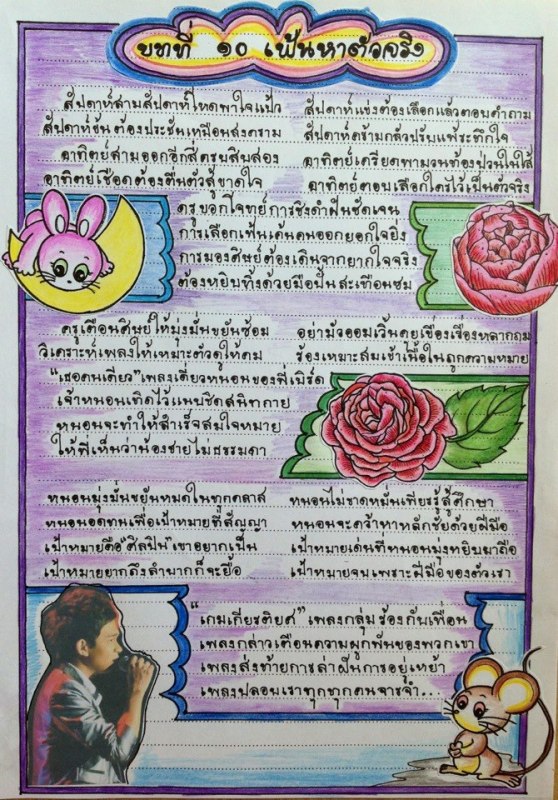 บทที่ ๑๐ เฟ้นหาตัวจริง
สัปดาห์สามสัปดาห์ไหดพาใจแป้ว สัปดาห์แข่งต้องเลือกแล้วตอบคำถาม
สัปดาห์ชันต้องประชันเหมือนสงคราม สัปดาห์คร้ามกลัวปรับแพ้ระทึกใจ
อาทิตย์สามออกอีกสี่ครบสิบสอง อาทิตย์เครียดพาบวนท้องป่วนในไส้
อาทิตย์เชือดต้องตื่นตัวสู้ขาดใจ อาทิตย์ตอบเลือกใครไว้เป็นตัวจริง
ครูบอกโจทย์การชิงดำฝันชัดเจน
การเลือกเฟ้นเค้นคนออกยอกใจยิ่ง
การมองศิษย์ต้องเดินจากยากใจจริง
ต้องหยิบทิ้งด้วยมือปั้นสะเทือนซม
ครูเตือนศิษย์ให้มุ่งมั่นขยันซ้อม อย่ามัวออมเวิ้นคุยเขื่องเรื่องหลากฤม
วิเคราะห์เพลงให้เหมาะตัวดูให้คม ร้องเหมาะสมเข้าเนื้อในถูกความหมาย
"เธอคนเดียว" เพลงเดี่ยวหนอนของพี่เบิร์ด
เจ้าหนอนเทิดไว้แนบชิดสนิทกาย
หนอนจะทำให้สำเร็จสมใจหมาย
ให้พี่เห็นว่าน้องชายไม่ธรรมดา
หนอนมุ่งมั่นขยันหมดในทุกคลาส หนอนไม่ขาดหมั่นเพียรรู้สู้ศึกษา
หนอนอดทนเพื่อเป้าหมายที่สัญญา หนอนจะคว้าหาหลักชัยด้วยฝีมือ
เป้าหมายคือ "ศิลปิน" เขาอยากเป็น เป้าหมายเด่นที่หนอนมุ่งหยิบมาถือ
เป้าหมายยากถึงลำบากก็จะยื้อ เป้าหมายจบเพราะฝีมือของตัวเรา
"เกมเกียรติยศ" เพลงกลุ่มร้องกับเพื่อน
เพลงกล่าวเตือนความผูกพันของพวกเขา
เพลงส่งท้ายการล่าฝันการอยู่เหย้า
เพลงปลอบเราทุกทุกคนจารจำ...